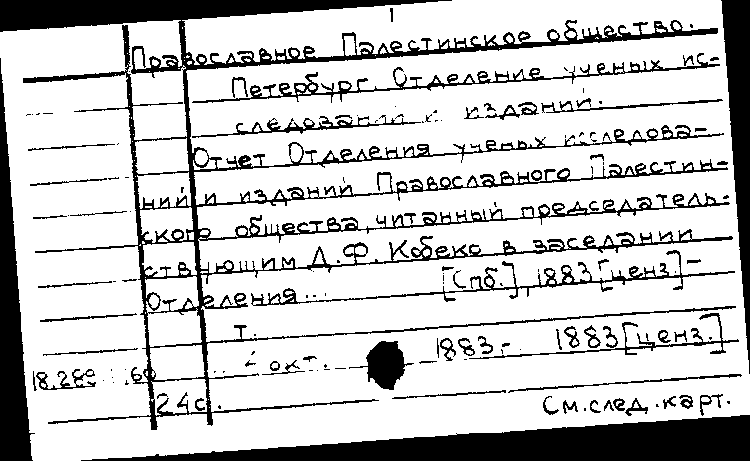 Православное Палестинское общество.
Петербург. Отделение ученых ис-
следований и изданий.
Отчет Отделения ученых исследова-
ний и изданий Православного Палестин-
ского общества, читанный председатель-
ствующим Д. Ф. Кобеко в заседании
Отделения... [Спб.], 1883 [ценз.] -
Т.
окт. 1883.- 1883 [ценз.]
24с.
См. след. карт.